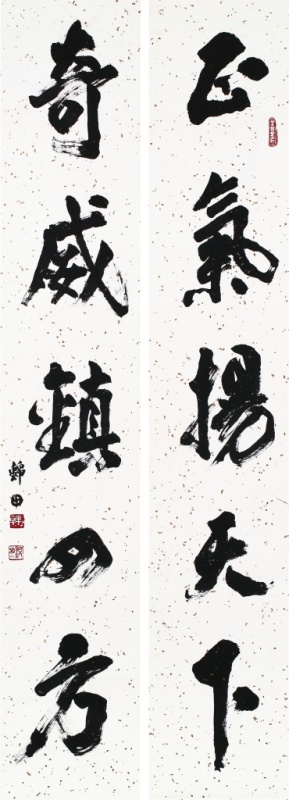 正氣揚天下
奇威鎮四方